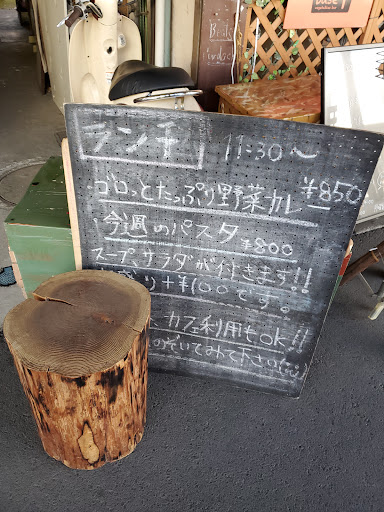 ランチ 11:30〜
ゴロっとたっぷり野菜カレー ¥850
今週のパスタ ¥800
スープ サラダが付きます!!
+¥100です。
カフェ利用もok!!
のぞいてみて下さい